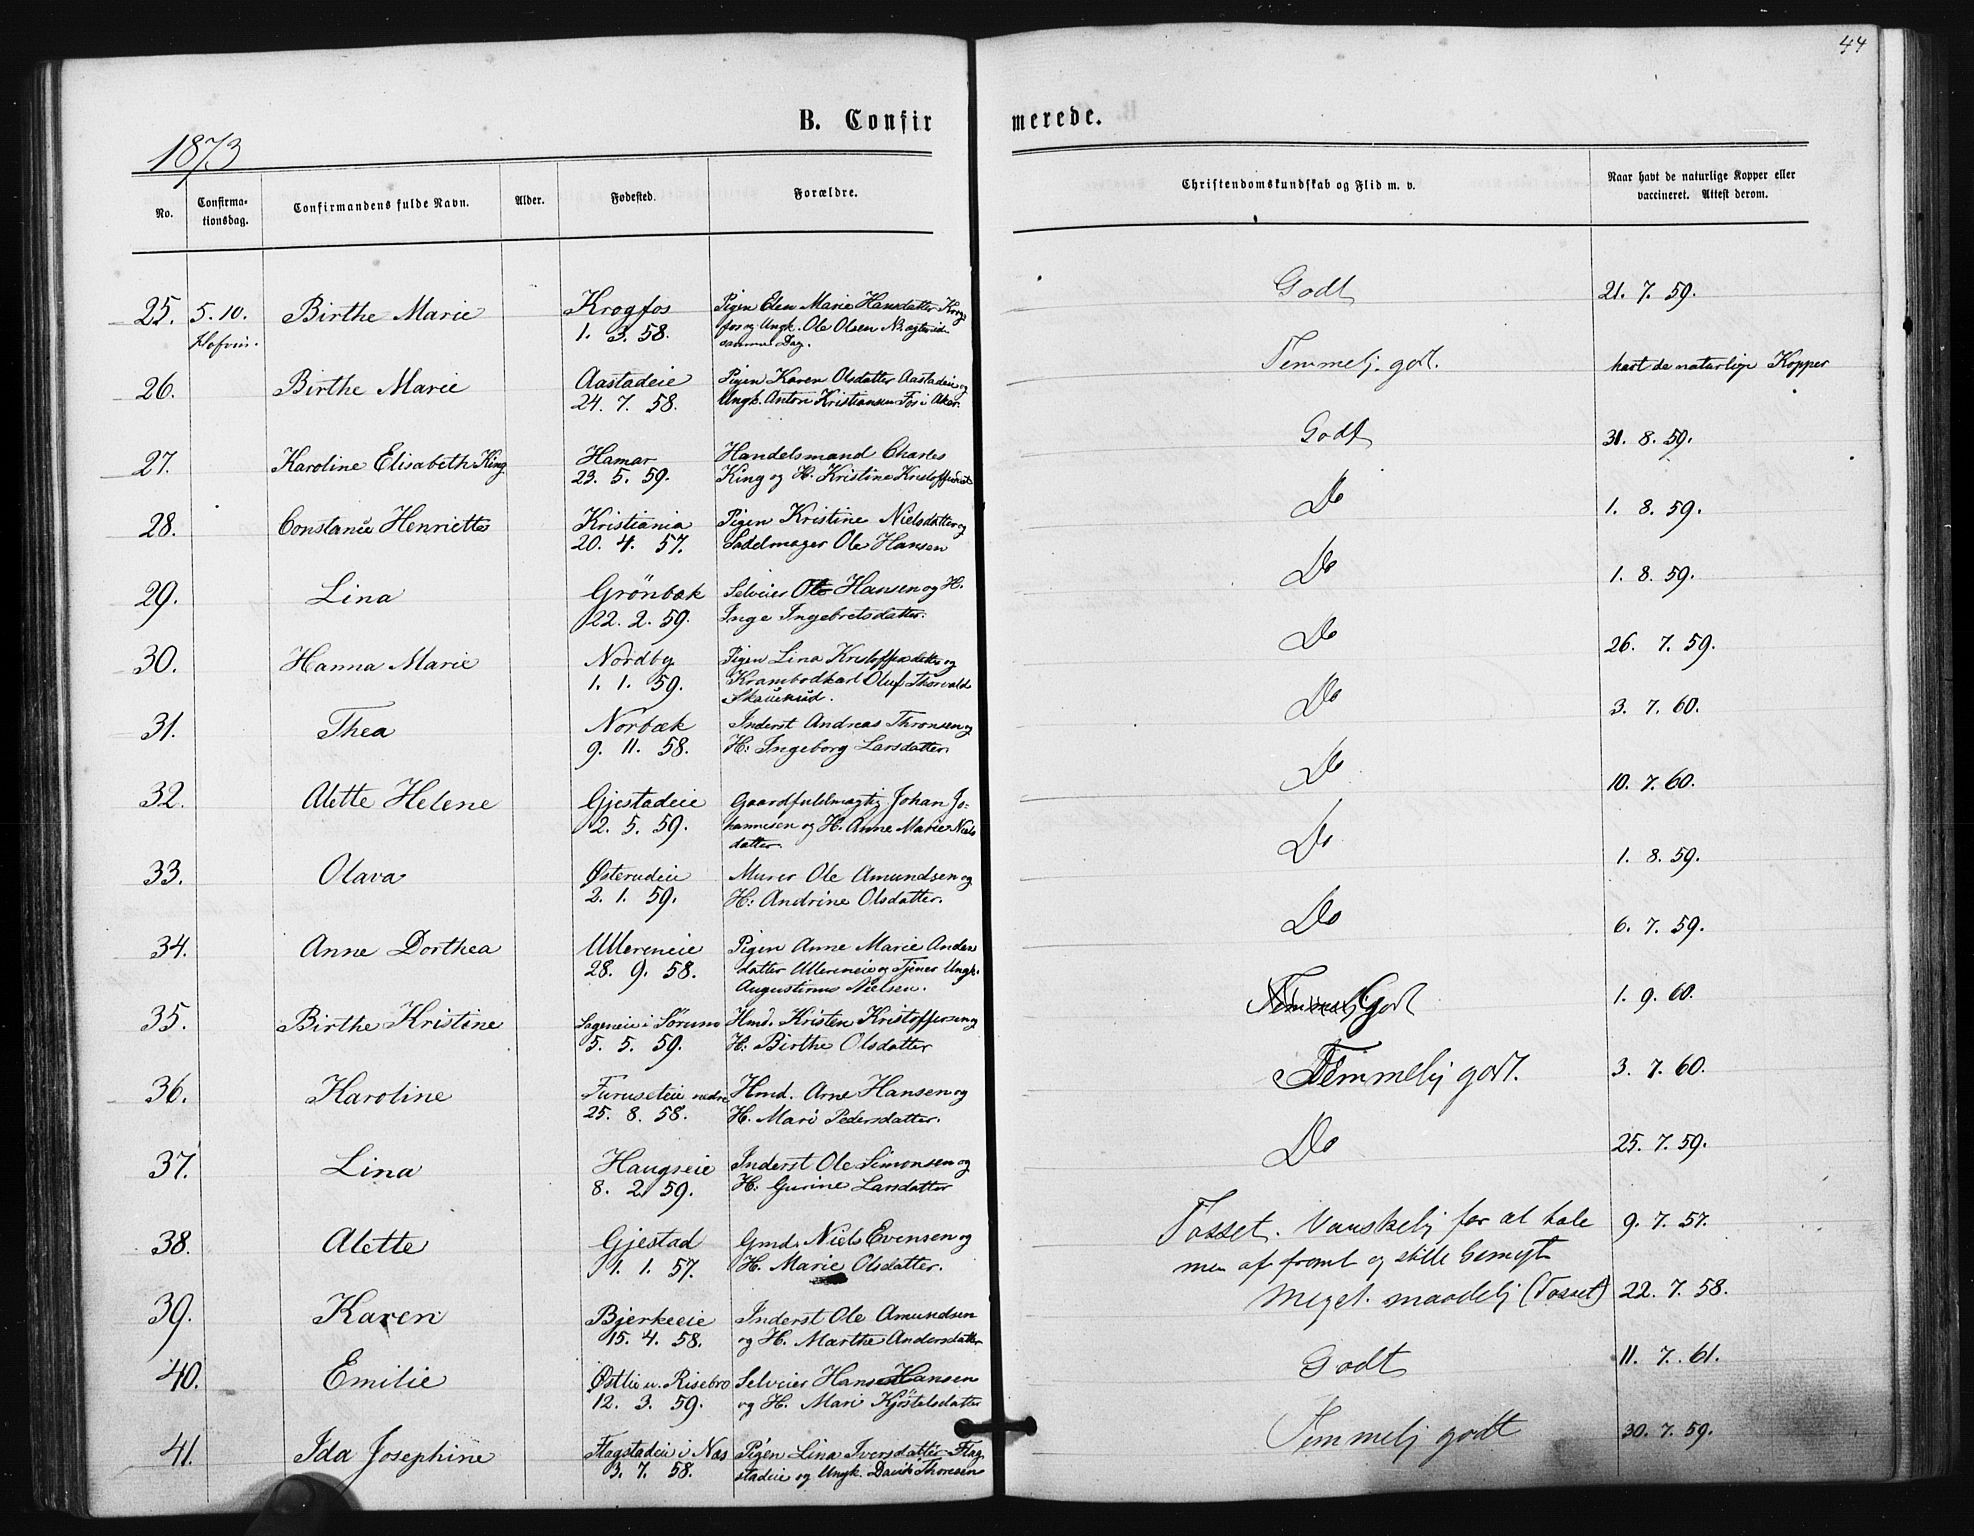 44
B. Confirmerede.
1873
No.
Confirmationsdag.
Confirmandens fulde Navn.
Alder.
Fødested.
Forældre.
Christendomskundskab og Flid m. v.
Naar havt de naturlige Kopper eller vaccineret. Attest derom.
25. 5. 10. Birthe Marie Krogfos Pigen Elen Marie Hansdatter Krog- Godt 21. 7. 59.
1. 3. 58. fos og Ungk. Ole Olsen
samme Dag.
26. Birthe Marie Aastadeie Pigen Karen Olsdatter Aastadeie og Temmelig godt. havt de naturlige Kopper
24. 7. 58. Ungk. Anton Kristiansen Fos i Aker.
27. Karoline Elisabeth King Hamar Handelsmand Charles Godt 31. 8. 59.
23. 5. 59. King og H. Kristine Kristoffersdat
28. Constance Henriette Kristiania Pigen Kristine Nielsdatter og Do 1. 8. 59.
20. 4. 57. Sadelmager Ole Hansen
29. Lina Grönbæk Selveier Ole Hansen og H. Do 1. 8. 59.
22. 2. 59. Inge Ingebretsdatter.
30. Hanna Marie Nordby Pigen Lina Kristoffersdatter og Do 26. 7. 59.
1. 1. 59. Krambodkarl Oluf Thorvald
31. Thea Norbæk Inderst Andreas Thronsen og Do 3. 7. 60.
9. 11. 58. H: Ingeborg Larsdatter.
32. Alette Helene Gjestadeie Gaardfuldmægtig Johan Jo- Do 10. 7. 60.
2. 5. 59. hannesen og H. Anne Marie Niels
datter.
33. Olava Østerudeie Murer Ole Amundsen og Do 1. 8. 59.
2. 1. 59. H: Andrine Olsdatter.
34. Anne Dorthea Ullereneie Pigen Anne Marie Anders Do 6. 7. 59.
28. 9. 58. datter Ullereneie og Tjener Ungk.
Augustinus Nielsen.
35. Birthe Kristine i Sörum Hmd. Kristen Kristoffersen og Godt 1. 9. 60.
5. 5. 59. H: Birthe Olsdatter
36. Karoline Furuseteie nedre Hmd. Arne Hansen og Temmelig godt. 3. 7. 60.
25. 8. 58. H. Mari Pedersdatter.
37. Lina Haugseie Inderst Ole Simonsen og Do 25. 7. 59.
8. 2. 59. H: Gurine Larsdatter
38. Alette Gjestad Gmd. Niels Evensen og Tosset. Vanskelig for at tale 9. 7. 57.
1. 1. 57. H. Marie Olsdatter. men af fromt og stille Gemyt
39. Karen Bjerkeeie Inderst Ole Amundsen Meget maadelig (Tosset) 22. 7. 58.
15. 4. 58. og H. Marthe Andersdatter
40. Emilie Østlie u. Risebro Selveier Hans Hansen Godt 11. 7. 61.
12. 3. 59. og H. Mari Kjöstelsdatter
41. Ida Josephine Flagstadeie i Næs Pigen Lina Iversdatter Flag Temmelig godt 30. 7. 59.
3. 7. 58. stadeie og Ungk. David Thoresen